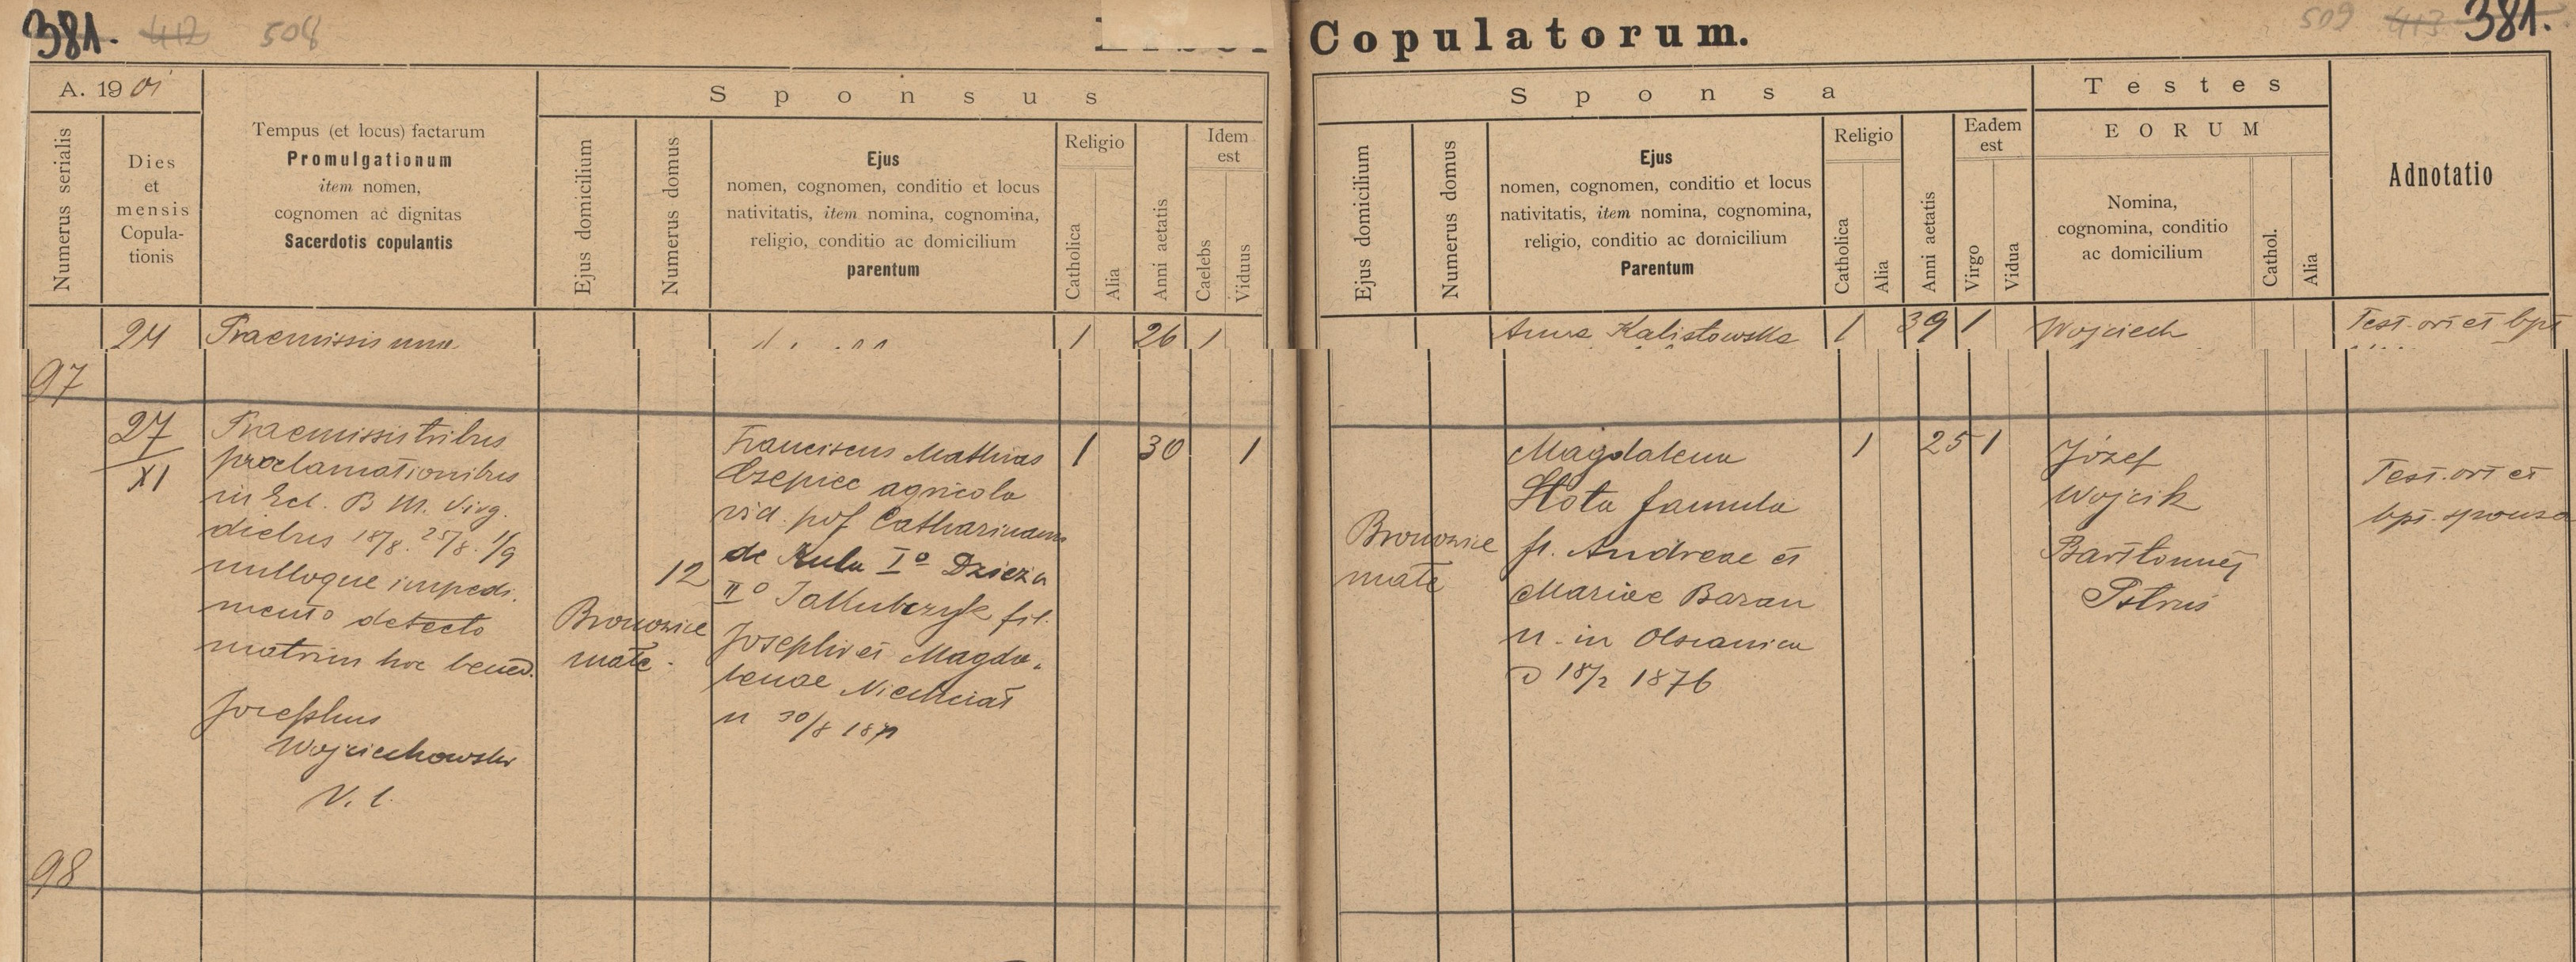 381. 412 508
Copulatorum.
509 413 381.
A. 1901
Numerus serialis
Dies
et
mensis
Copula-
tionis
Tempus (et locus) factarum
Promulgationum
item nomen,
cognomen ac dignitas
Sacerdotis copulantis
Sponsus
Ejus domicilium
Numerus domus
Ejus
nomen, cognomen, conditio et locus
nativitatis, item nomina, cognomina,
religio, conditio ac domicilium
parentum
Religio
Catholica
Alia
Anni aetatis
Idem
est
Caelebs
Viduus
Sponsa
Ejus domicilium
Numerus domus
Ejus
nomen, cognomen, conditio et locus
nativitatis, item nomina, cognomina,
religio, conditio ac domicilium
Parentum
Religio
Catholica
Alia
Anni aetatis
Eadem
est
Virgo
Vidua
Testes
EORUM
Nomina,
cognomina, conditio
ac domicilium
Cathol.
Alia
Adnotatio
24
Praemissis una
1 26 1
Anna Kalistowska
1 39 1
Wojciech
Test. ort et bpt
97
27
XI
Praemissis tribus
proclamationibus
in Ecl. B. M. Virg.
diebus 18/8. 25/8. 1/9
nulloque impedi-
mento detecto
matrim hoc bened.
Josephus
Wojciechowski
V. c.
Bronowice
małe.
12
Franciscus Mathias
Czepiec agricola
vid. pos Catharinam
de Kula I° Dzieża
II° Jakubczyk fil.
Josephi et Magda-
lenae Niechciał
n 30/8 1871
1 30 1
Bronowice
małe
Magdalena
Słota famula
fl. Andreae et
Mariae Baran
n. in Olszanica
d 18/2 1876
1 25 1
Józef
Wojcik
Bartłomiej
Pstruś
Test. ort et
bpt. sponsa
98